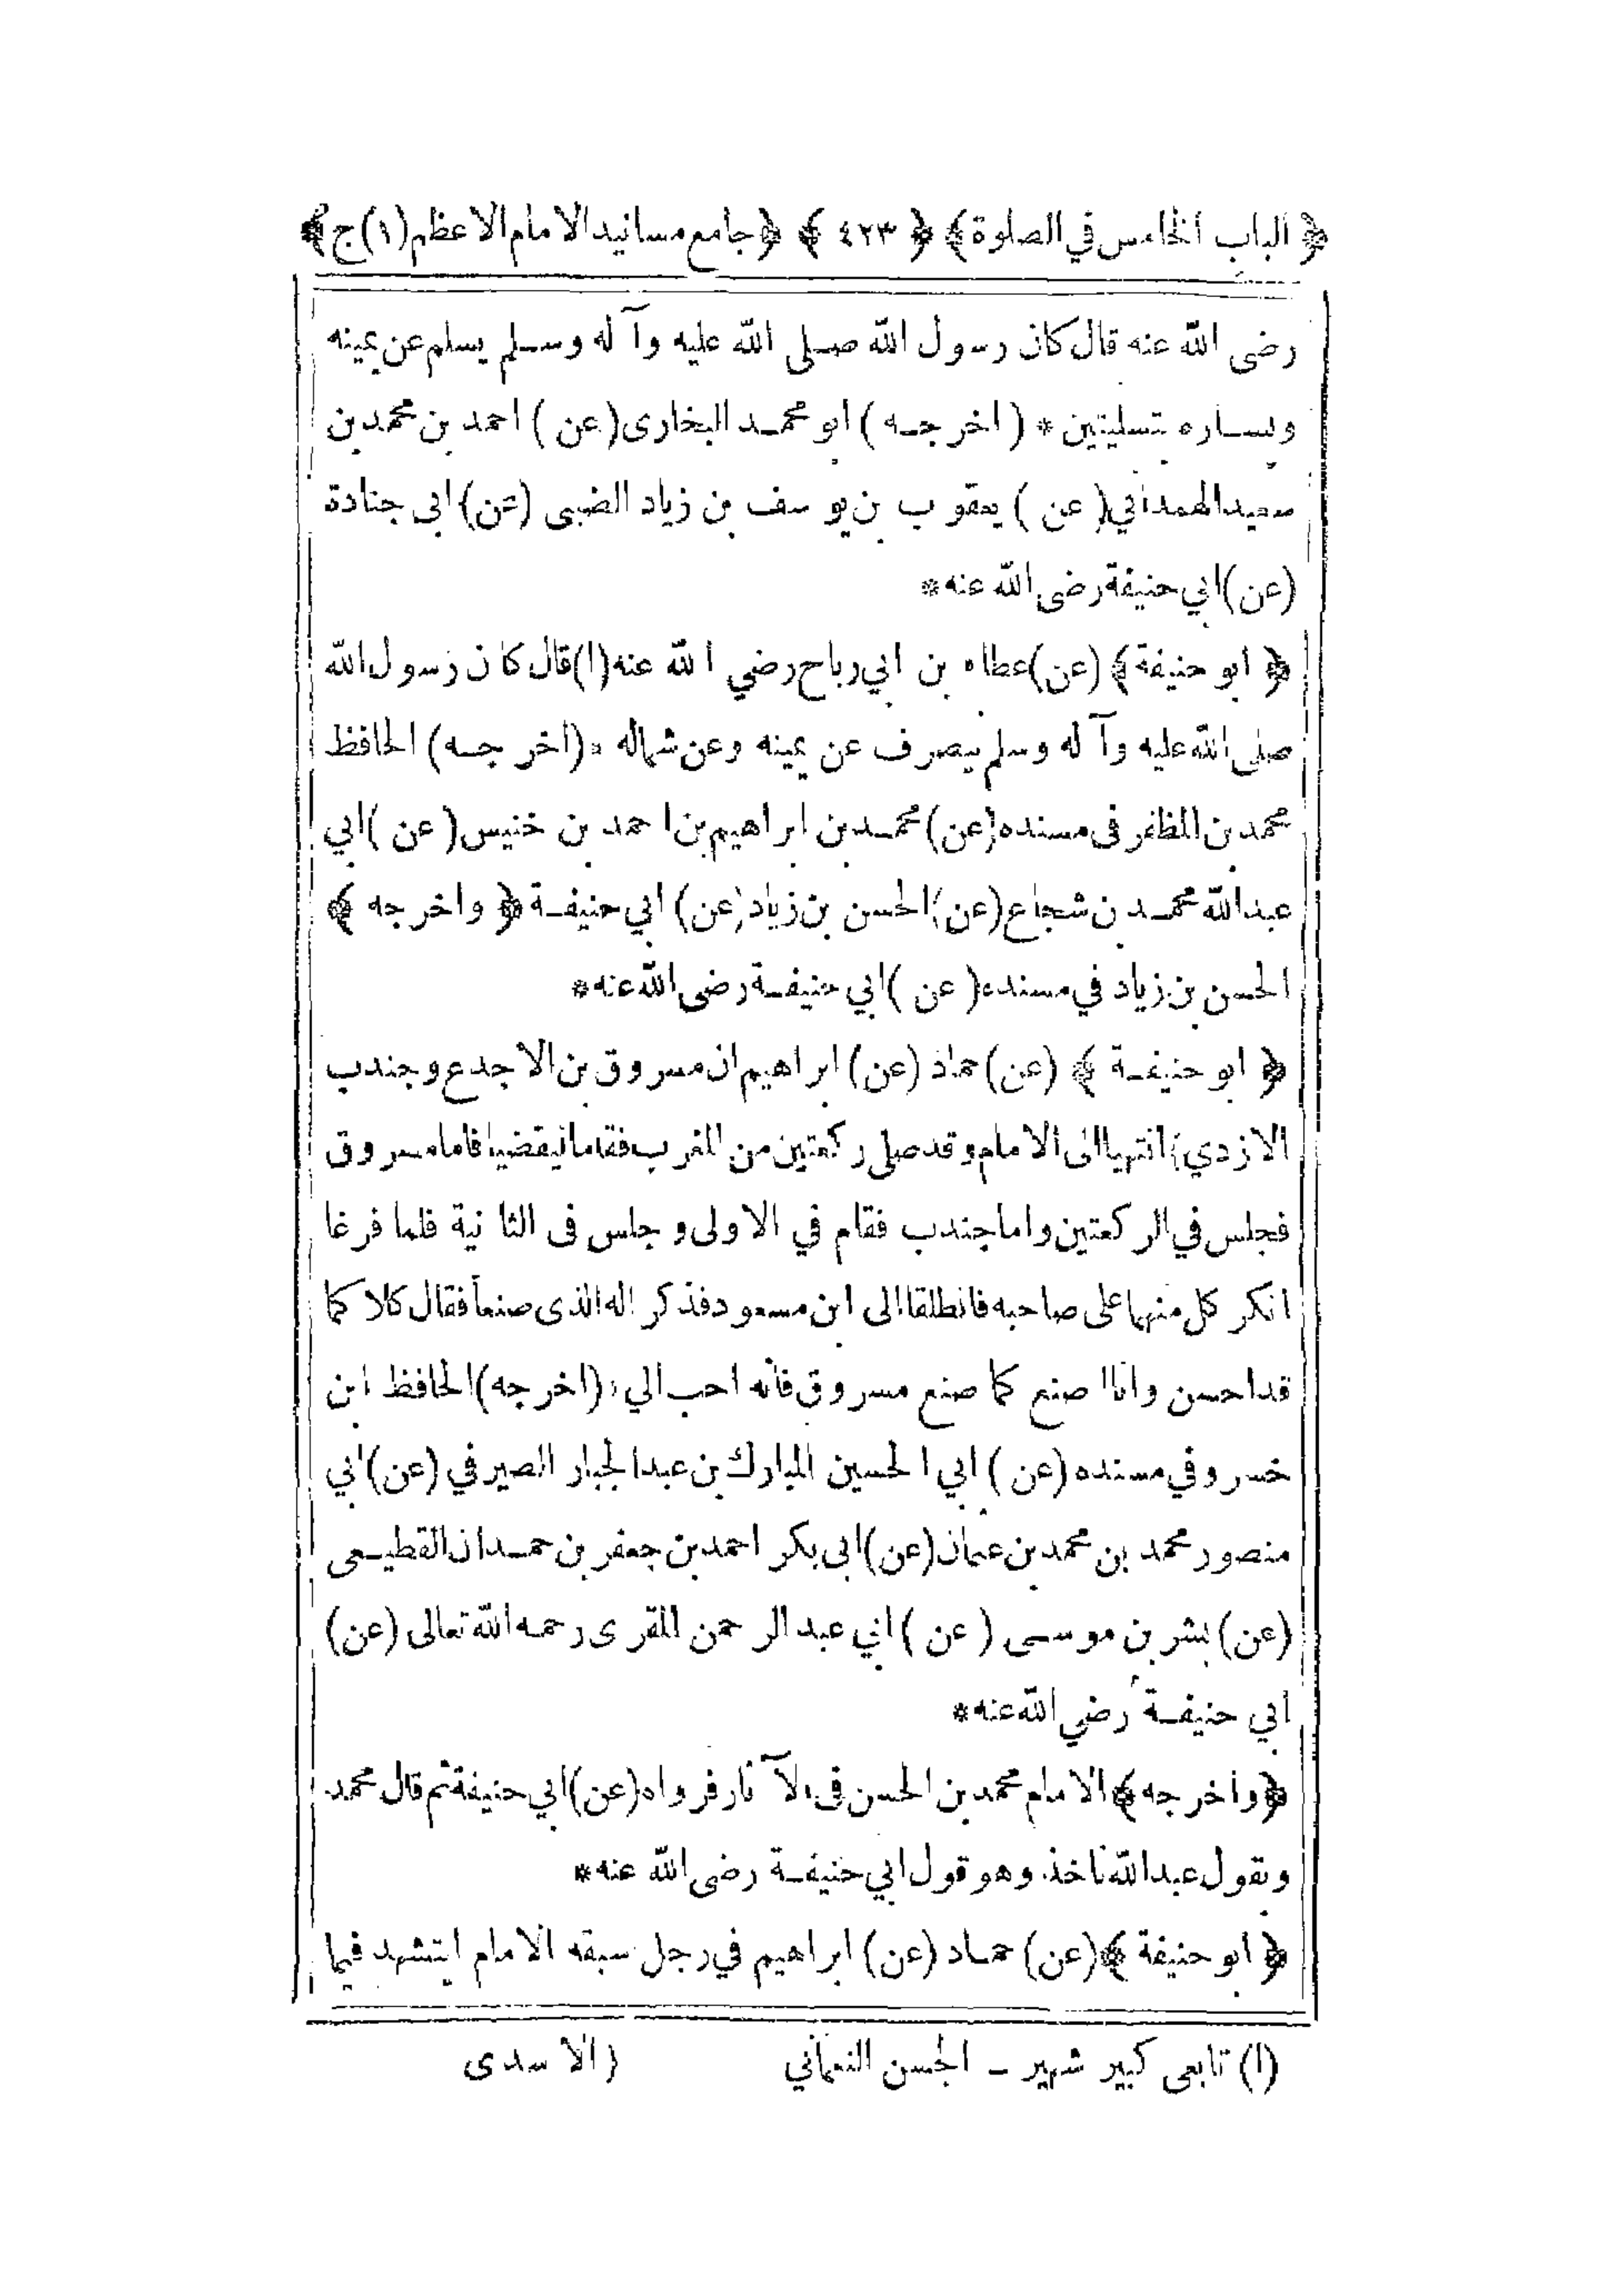 ﴿ الباب الخامس في الصلوة ﴾ ﴿ ٤٢٣ ﴾ ﴿ جامع مسانيد الامام الاعظم (١) ج ﴾
رضى الله عنه قال كان رسول الله صلى الله عليه وآله وسلم يسلم عن يمينه
ويساره تسليتين * ( اخرجه ) ابو محمد البخارى (عن ) احمد بن محمد بن
سعيد الهمداني (عن ) يعقوب بن يوسف بن زياد الضبى (عن) ابى جنادة
(عن) ابي حنيفة رضى الله عنه *
﴿ ابو حنيفة ﴾ (عن) عطاء بن ابي رباح رضي الله عنه (١) قال كان رسول الله
صلى الله عليه وآله وسلم ينصرف عن يمينه وعن شماله * (اخرجه) الحافظ
محمد بن المظفر فى مسنده (عن) محمد بن ابراهيم بن احمد بن خنيس (عن ) ابي
عبد الله محمد بن شجاع (عن) الحسن بن زياد (عن) ابي حنيفة ﴿ واخرجه ﴾
الحسن بن زياد في مسنده (عن ) ابي حنيفة رضى الله عنه *
﴿ ابو حنيفة ﴾ (عن) حماد (عن) ابراهيم ان مسروق بن الاجدع وجندب
الازدي) انتهيا الى الامام وقد صلى ركعتين من المغرب فقاما ليقضيا فاما مسروق
فجلس في الركعتين واما جندب فقام في الاولى وجلس فى الثانية فلما فرغا
انكر كل منهما على صاحبه فانطلقا الى ابن مسعود فذكرا له الذى صنعا فقال كلا كما
قد احسن وانا اصنع كما صنع مسروق فانه احب الي * (اخرجه) الحافظ ابن
خسرو في مسنده (عن ) ابي الحسين المبارك بن عبد الجبار الصيرفي (عن) ابي
منصور محمد بن محمد بن عثمان (عن) ابى بكر احمد بن جعفر بن حمدان القطيعى
(عن) بشر بن موسى (عن ) ابي عبد الرحمن المقرى رحمه الله تعالى (عن)
ابي حنيفة رضي الله عنه *
﴿ واخرجه ﴾ الامام محمد بن الحسن فى الآثار فرواه (عن) ابي حنيفة ثم قال محمد
وبقول عبد الله ناخذ وهو قول ابي حنيفة رضى الله عنه *
﴿ ابو حنيفة ﴾ (عن) حماد (عن) ابراهيم في رجل سبقه الامام ايتشهد فيما
(١) تابعى كبير شهير - الحسن النعماني ) الاسدى